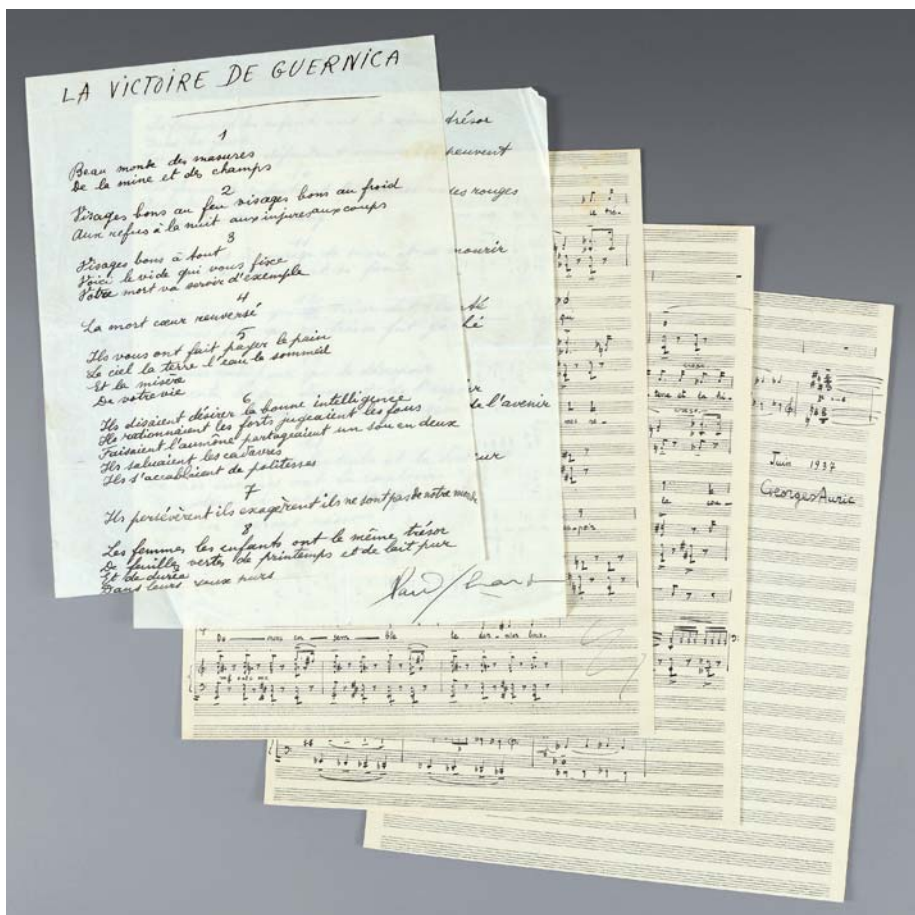 LA VICTOIRE DE GUERNICA
1
Beau monde des masures
De la mine et des champs
2
Visages bons au feu visages bons au froid
Aux refus à la nuit aux injures aux coups
3
Visages bons à tout
Voici le vide qui vous fixe
Votre mort va servir d'exemple
4
La mort cœur renversé
5
Ils vous ont fait payer le pain
Le ciel la terre l'eau le sommeil
Et la misère
De votre vie
6
Ils disaient désirer la bonne intelligence
Ils rationnaient les forts jugeaient les fous
Faisaient l'aumône partageaient un sou en deux
Ils saluaient les cadavres
Ils s'accablaient de politesses
7
Ils persévèrent ils exagèrent ils ne sont pas de notre monde
8
Les femmes les enfants ont le même trésor
De feuilles vertes de printemps et de lait pur
Et de durée
Dans leurs yeux purs
Paul Eluard
trésor
peuvent
des rouges
mourir
de l'avenir
qui
Juin 1937
Georges Auric